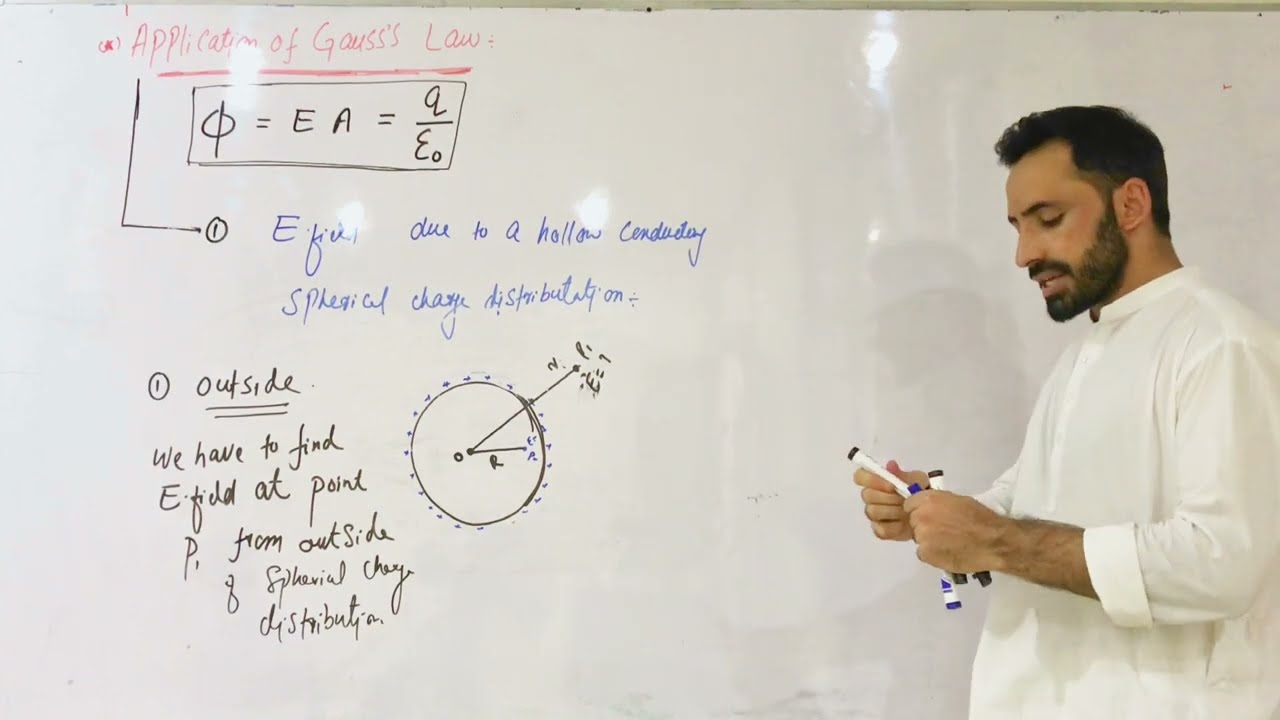 (*) Application of Gauss's Law:
ϕ = E A = q/ε₀
① E.field due to a hollow conducting
Spherical charge distributation:
① outside.
We have to find
E.field at point
P₁ from outside
of Spherial charge
distribution.
r P₁
E=?
O R
P₂